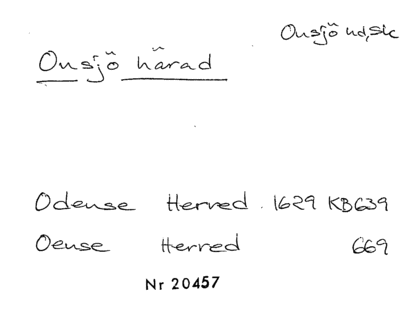 Onsjö hd, Sk
Onsjö härad
Odense Herred 1629 KB639
Oeuse Herred 669
Nr 20457